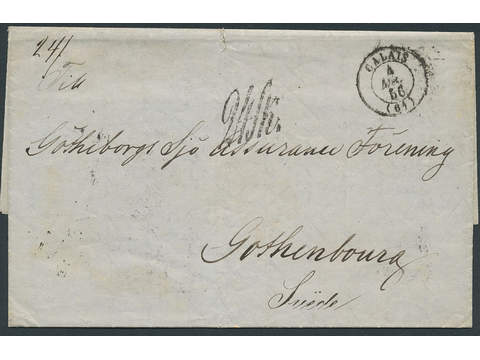 24/
Till
CALAIS
4
56
(61)
Götheborgs Sjö Assurance Förening
Gothenbourg
Suède